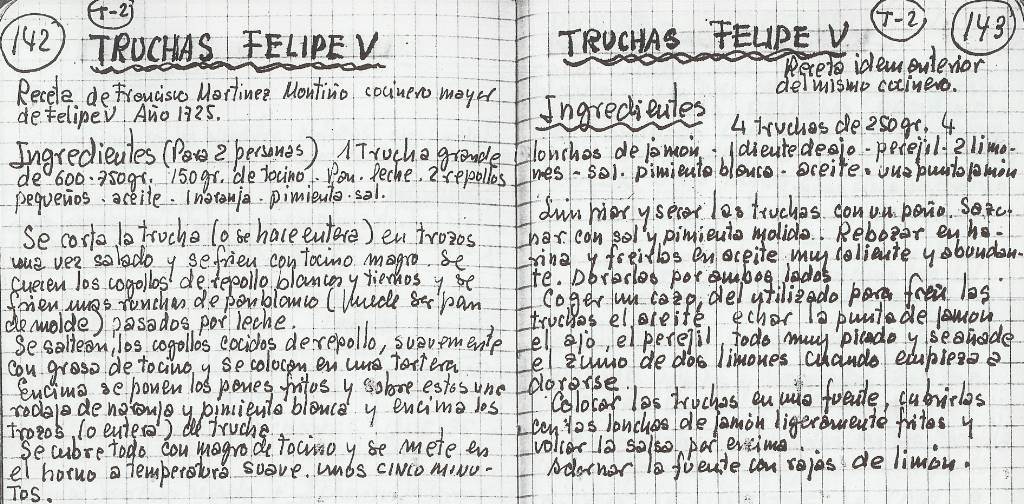 142
T-2
TRUCHAS FELIPE V
Receta de Francisco Martinez Montiño cocinero mayor
de Felipe V Año 1725.
Ingredientes (Para 2 personas) 1 Trucha grande
de 600-750gr. 150gr. de tocino - Pan. leche. 2 repollos
pequeños - aceite - 1 naranja - pimienta - sal.
Se corta la trucha (o se hace entera) en trozos
una vez salado y se frien con tocino magro. Se
cuecen los cogollos de repollo blancos y tiernos y se
frien unas ronchas de pan blanco (puede ser pan
de molde) pasados por leche.
Se saltean, los cogollos cocidos de repollo, suavemente
con grasa de tocino y se colocan en una tartera
Encima se ponen los panes fritos y sobre estos una
rodaja de naranja y pimienta blanca y encima los
trozos (o entera) de trucha
Se cubre todo con magro de tocino y se mete en
el horno a temperatura suave. unos CINCO MINU-
TOS.
T-2
143
TRUCHAS FELIPE V
Receta idem anterior
del mismo cocinero.
Ingredientes
4 truchas de 250gr. 4
lonchas de jamon - 1 diente de ajo - perejil - 2 limo-
nes - sal - pimienta blanca - aceite - una punta jamón
Limpiar y secar las truchas con un paño. Sazo-
nar con sal y pimienta molida. Rebozar en ha-
rina y freirlas en aceite muy caliente y abundan-
te. Dorarlas por ambos lados
Coger un cazo, del utilizado para freir las
truchas el aceite echar la punta de jamon
el ajo, el perejil, todo muy picado y se añade
el zumo de dos limones cuando empieza a
dorarse.
Colocar las truchas en una fuente, cubrirlas
con las lonchas de jamón ligeramente fritas y
volcar la salsa por encima
Adornar la fuente con rajas de limón.